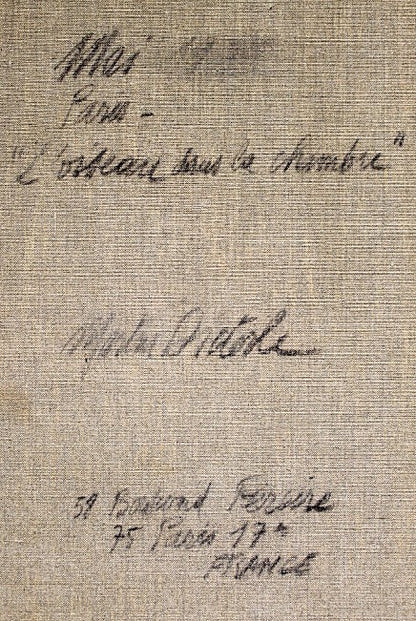 Mai
Paris -
"L'oiseau dans la chambre"
59 Boulevard Pereire
75 Paris 17e
FRANCE